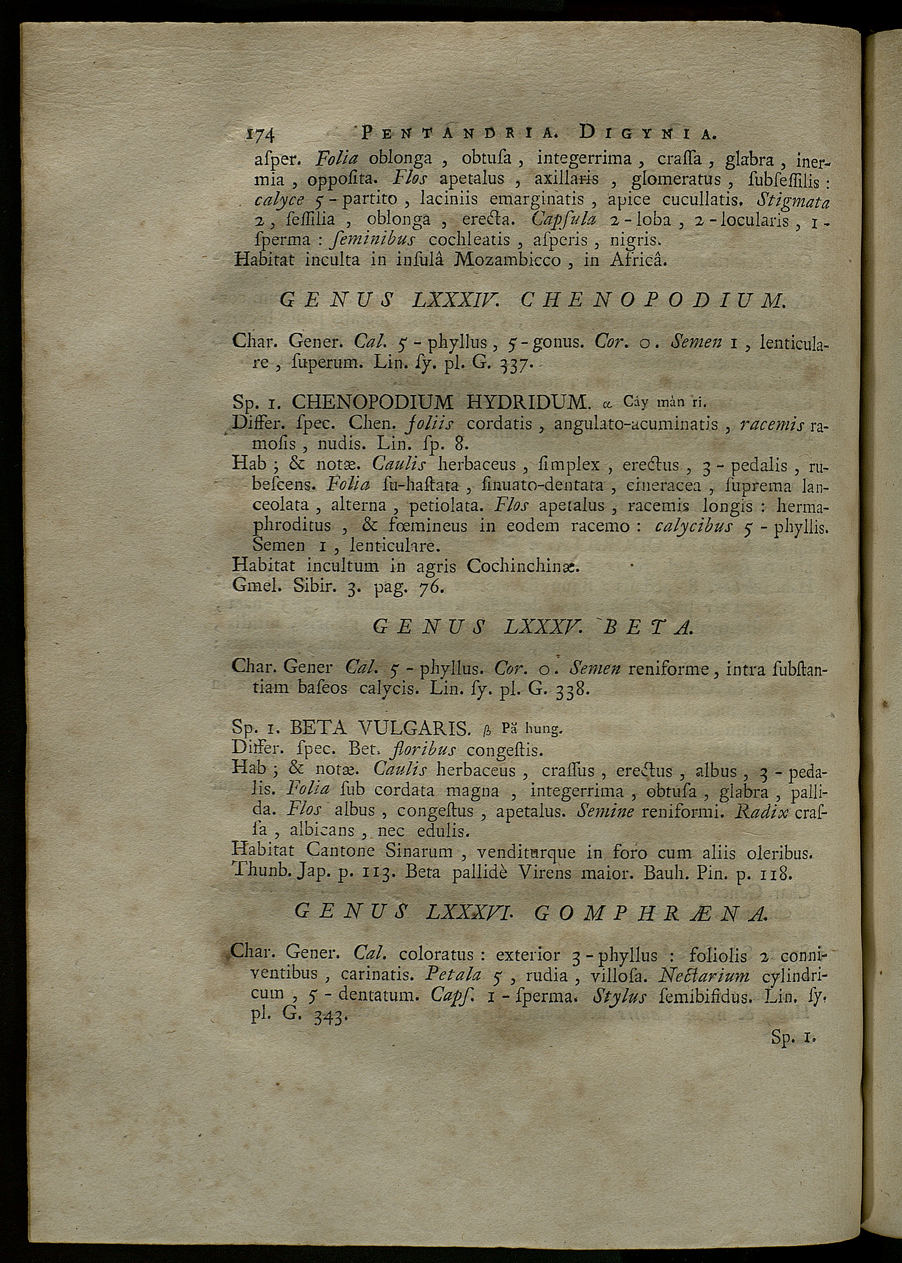 174 PENTANDRIA. DIGYNIA.
aſper. Folia oblonga , obtuſa , integerrima , craſſa , glabra , iner-
mia , oppoſita. Flos apetalus , axillaris , glomeratus , ſubſeſſilis :
calyce 5 - partito , laciniis emarginatis , apice cucullatis. Stigmata
2 , ſeſſilia , oblonga , erecta. Capſula 2 - loba , 2 - locularis , 1 -
ſperma : ſeminibus cochleatis , aſperis , nigris.
Habitat inculta in inſulâ Mozambicco , in Africâ.
GENUS LXXXIV. CHENOPODIUM.
Char. Gener. Cal. 5 - phyllus , 5 - gonus. Cor. 0. Semen 1 , lenticula-
re , ſuperum. Lin. ſy. pl. G. 337.
Sp. 1. CHENOPODIUM HYDRIDUM. α Cây màn ri.
Differ. ſpec. Chen. foliis cordatis , angulato-acuminatis , racemis ra-
moſis , nudis. Lin. ſp. 8.
Hab ; & notæ. Caulis herbaceus , ſimplex , erectus , 3 - pedalis , ru-
beſcens. Folia ſu-haſtata , ſinuato-dentata , cineracea , ſuprema lan-
ceolata , alterna , petiolata. Flos apetalus , racemis longis : herma-
phroditus , & fœmineus in eodem racemo : calycibus 5 - phyllis.
Semen 1 , lenticulare.
Habitat incultum in agris Cochinchinæ.
Gmel. Sibir. 3. pag. 76.
GENUS LXXXV. BETA.
Char. Gener Cal. 5 - phyllus. Cor. 0. Semen reniforme , intra ſubſtan-
tiam baſeos calycis. Lin. ſy. pl. G. 338.
Sp. 1. BETA VULGARIS. β Pä hung.
Differ. ſpec. Bet. floribus congeſtis.
Hab ; & notæ. Caulis herbaceus , craſſus , erectus , albus , 3 - peda-
lis. Folia ſub cordata magna , integerrima , obtuſa , glabra , palli-
da. Flos albus , congeſtus , apetalus. Semine reniformi. Radix craſ-
ſa , albicans , nec edulis.
Habitat Cantone Sinarum , venditurque in foro cum aliis oleribus.
Thunb. Jap. p. 113. Beta pallidè Virens maior. Bauh. Pin. p. 118.
GENUS LXXXVI. GOMPHRÆNA.
Char. Gener. Cal. coloratus : exterior 3 - phyllus : foliolis 2 conni-
ventibus , carinatis. Petala 5 , rudia , villoſa. Nectarium cylindri-
cum , 5 - dentatum. Capſ. 1 - ſperma. Stylus ſemibifidus. Lin. ſy.
pl. G. 343.
Sp. 1.